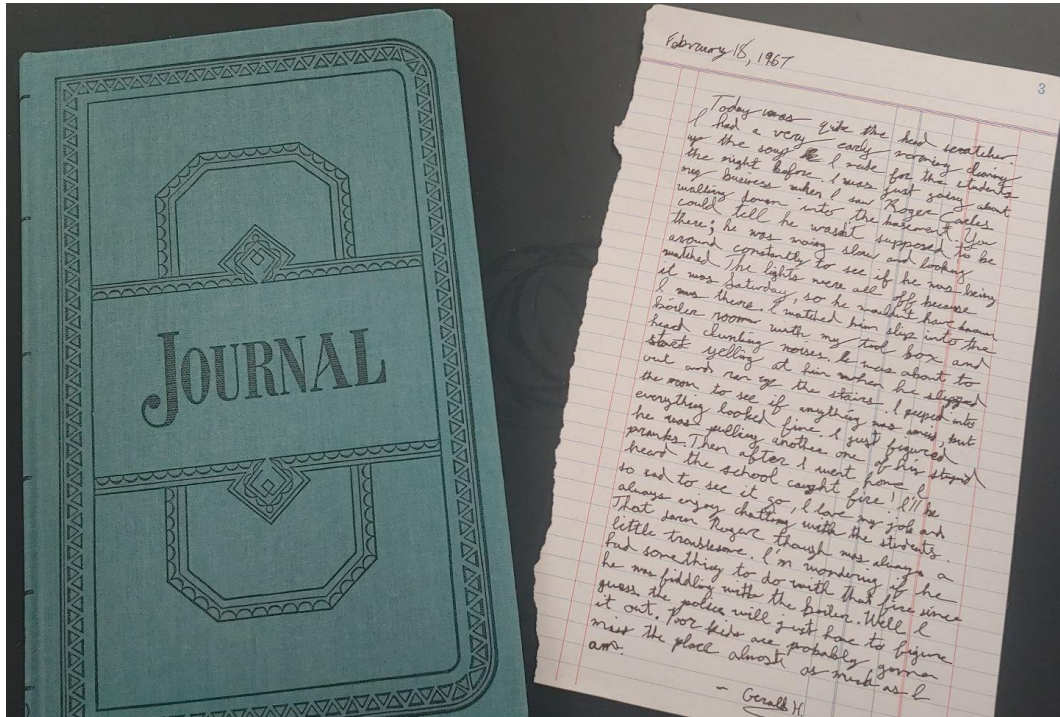 JOURNAL
February 18, 1967
3
Today was quite the head scratcher.
I had a very early morning cleaning
up the soup I made for the students
the night before. I was just going about
my business when I saw Roger Cacles
walking down into the basement. You
could tell he wasn't supposed to be
there; he was moving slow and looking
around constantly to see if he was being
watched. The lights were all off because
it was Saturday, so he wouldn't have known
I was there. I watched him slip into the
boiler room with my tool box and
heard clunking noises. I was about to
start yelling at him when he slipped
out and ran up the stairs. I peeped into
the room to see if anything was amiss, but
everything looked fine. I just figured
he was pulling another one of his stupid
pranks. Then after I went home I
heard the school caught fire! I'll be
so sad to see it go, I love my job and
always enjoy chatting with the students.
That darn Roger though was always a
little troublesome. I'm wondering if he
had something to do with that fire since
he was fiddling with the boiler. Well I
guess the police will just have to figure
it out. Poor kids are probably gonna
miss the place almost as much as I
am.
- Gerald H.